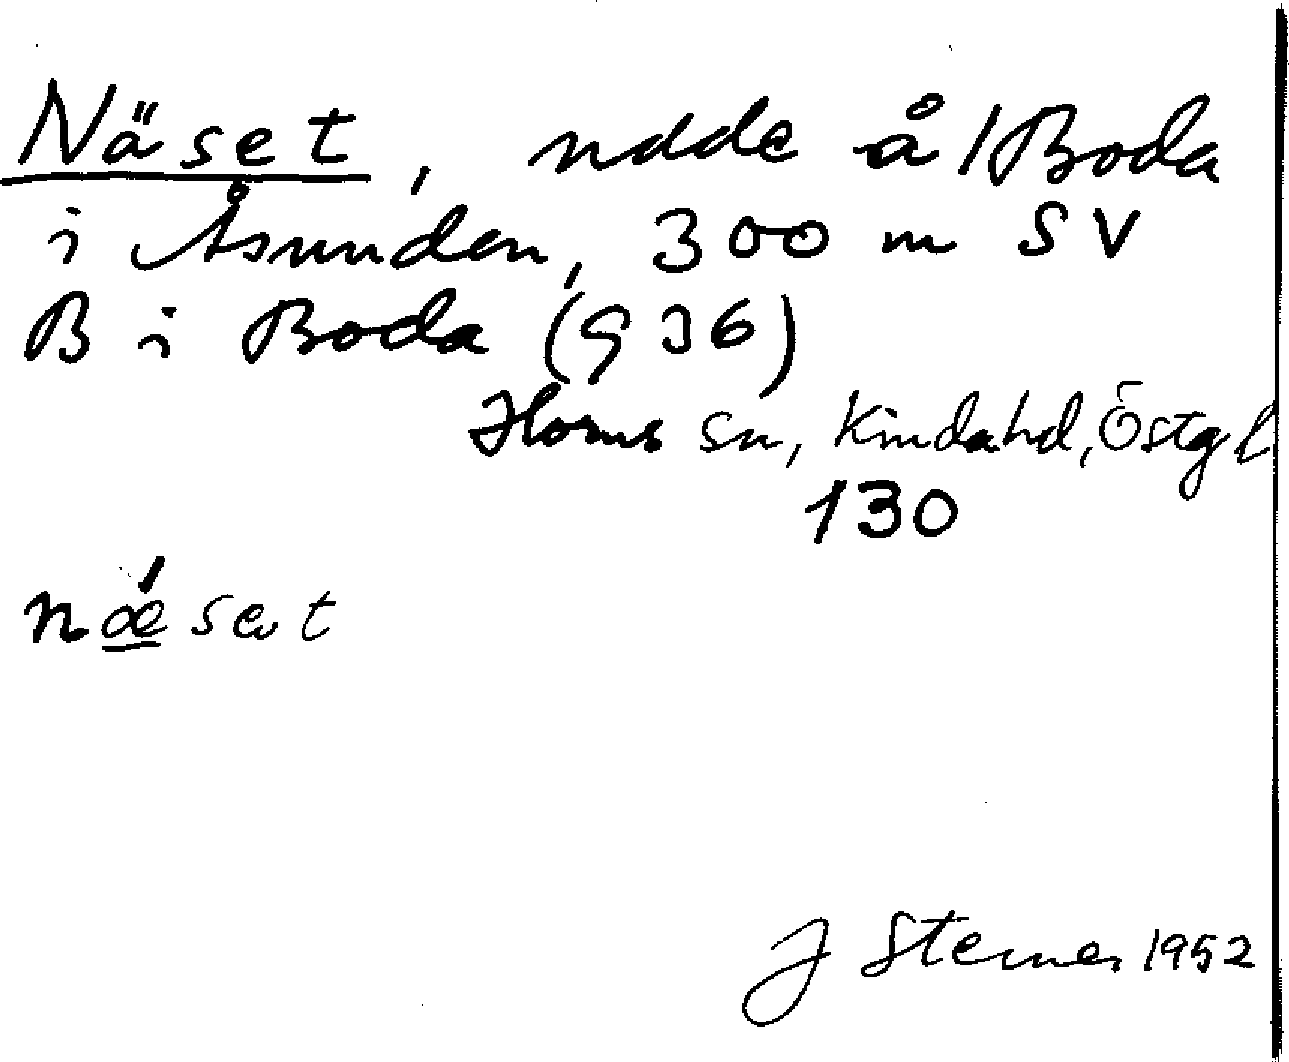 Näset, udde å /Boda
i Åsunden, 300 m SV
B i Boda (936)
Horns sn, Kindahd, Östgl
130
næ´set
J Sterner 1952